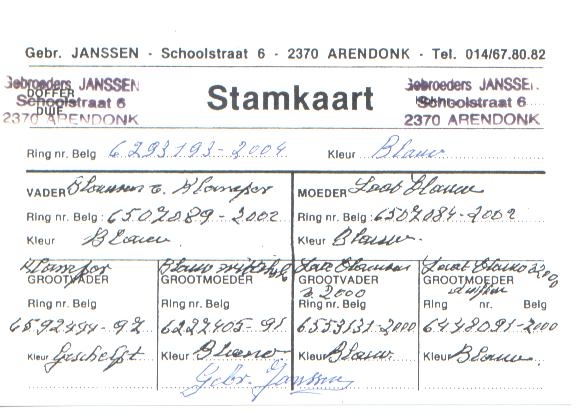 Gebr. JANSSEN - Schoolstraat 6 - 2370 ARENDONK - Tel. 014/67.80.82
Gebroeders JANSSEN
DOFFER
Schoolstraat 6
DUIF
2370 ARENDONK
Stamkaart
Gebroeders JANSSEN
Schoolstraat 6
2370 ARENDONK
Ring nr. Belg 6293193-2004 Kleur Blauw
VADER
Ring nr. Belg : 6502089-2002
Kleur Blauw.
MOEDER
Ring nr. Belg : 6502084-2002
Kleur Blauw.
GROOTVADER
Ring nr. Belg
6592494-92
Kleur Geschelpt
Blauw
GROOTMOEDER
Ring nr. Belg
6232405-91
Kleur Blauw
GROOTVADER
2000
Ring nr. Belg
6553131-2000
Kleur Blauw
2000
GROOTMOEDER
Ring nr. Belg
6448091-2000
Kleur Blauw.
Gebr. Janssen